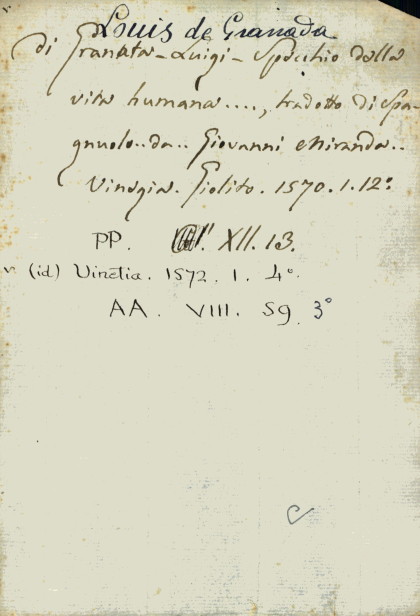 Louis de Granada
di Granata - Luigi - Specchio della
vita humana...., tradotto di Spa-
gnuolo.. da.. Giovanni Miranda..
Vinegia. Giolito. 1570. 1. 12°
PP. XII. 13.
(id) Vinetia. 1572. 1. 4°.
AA. VIII. 59. 3°